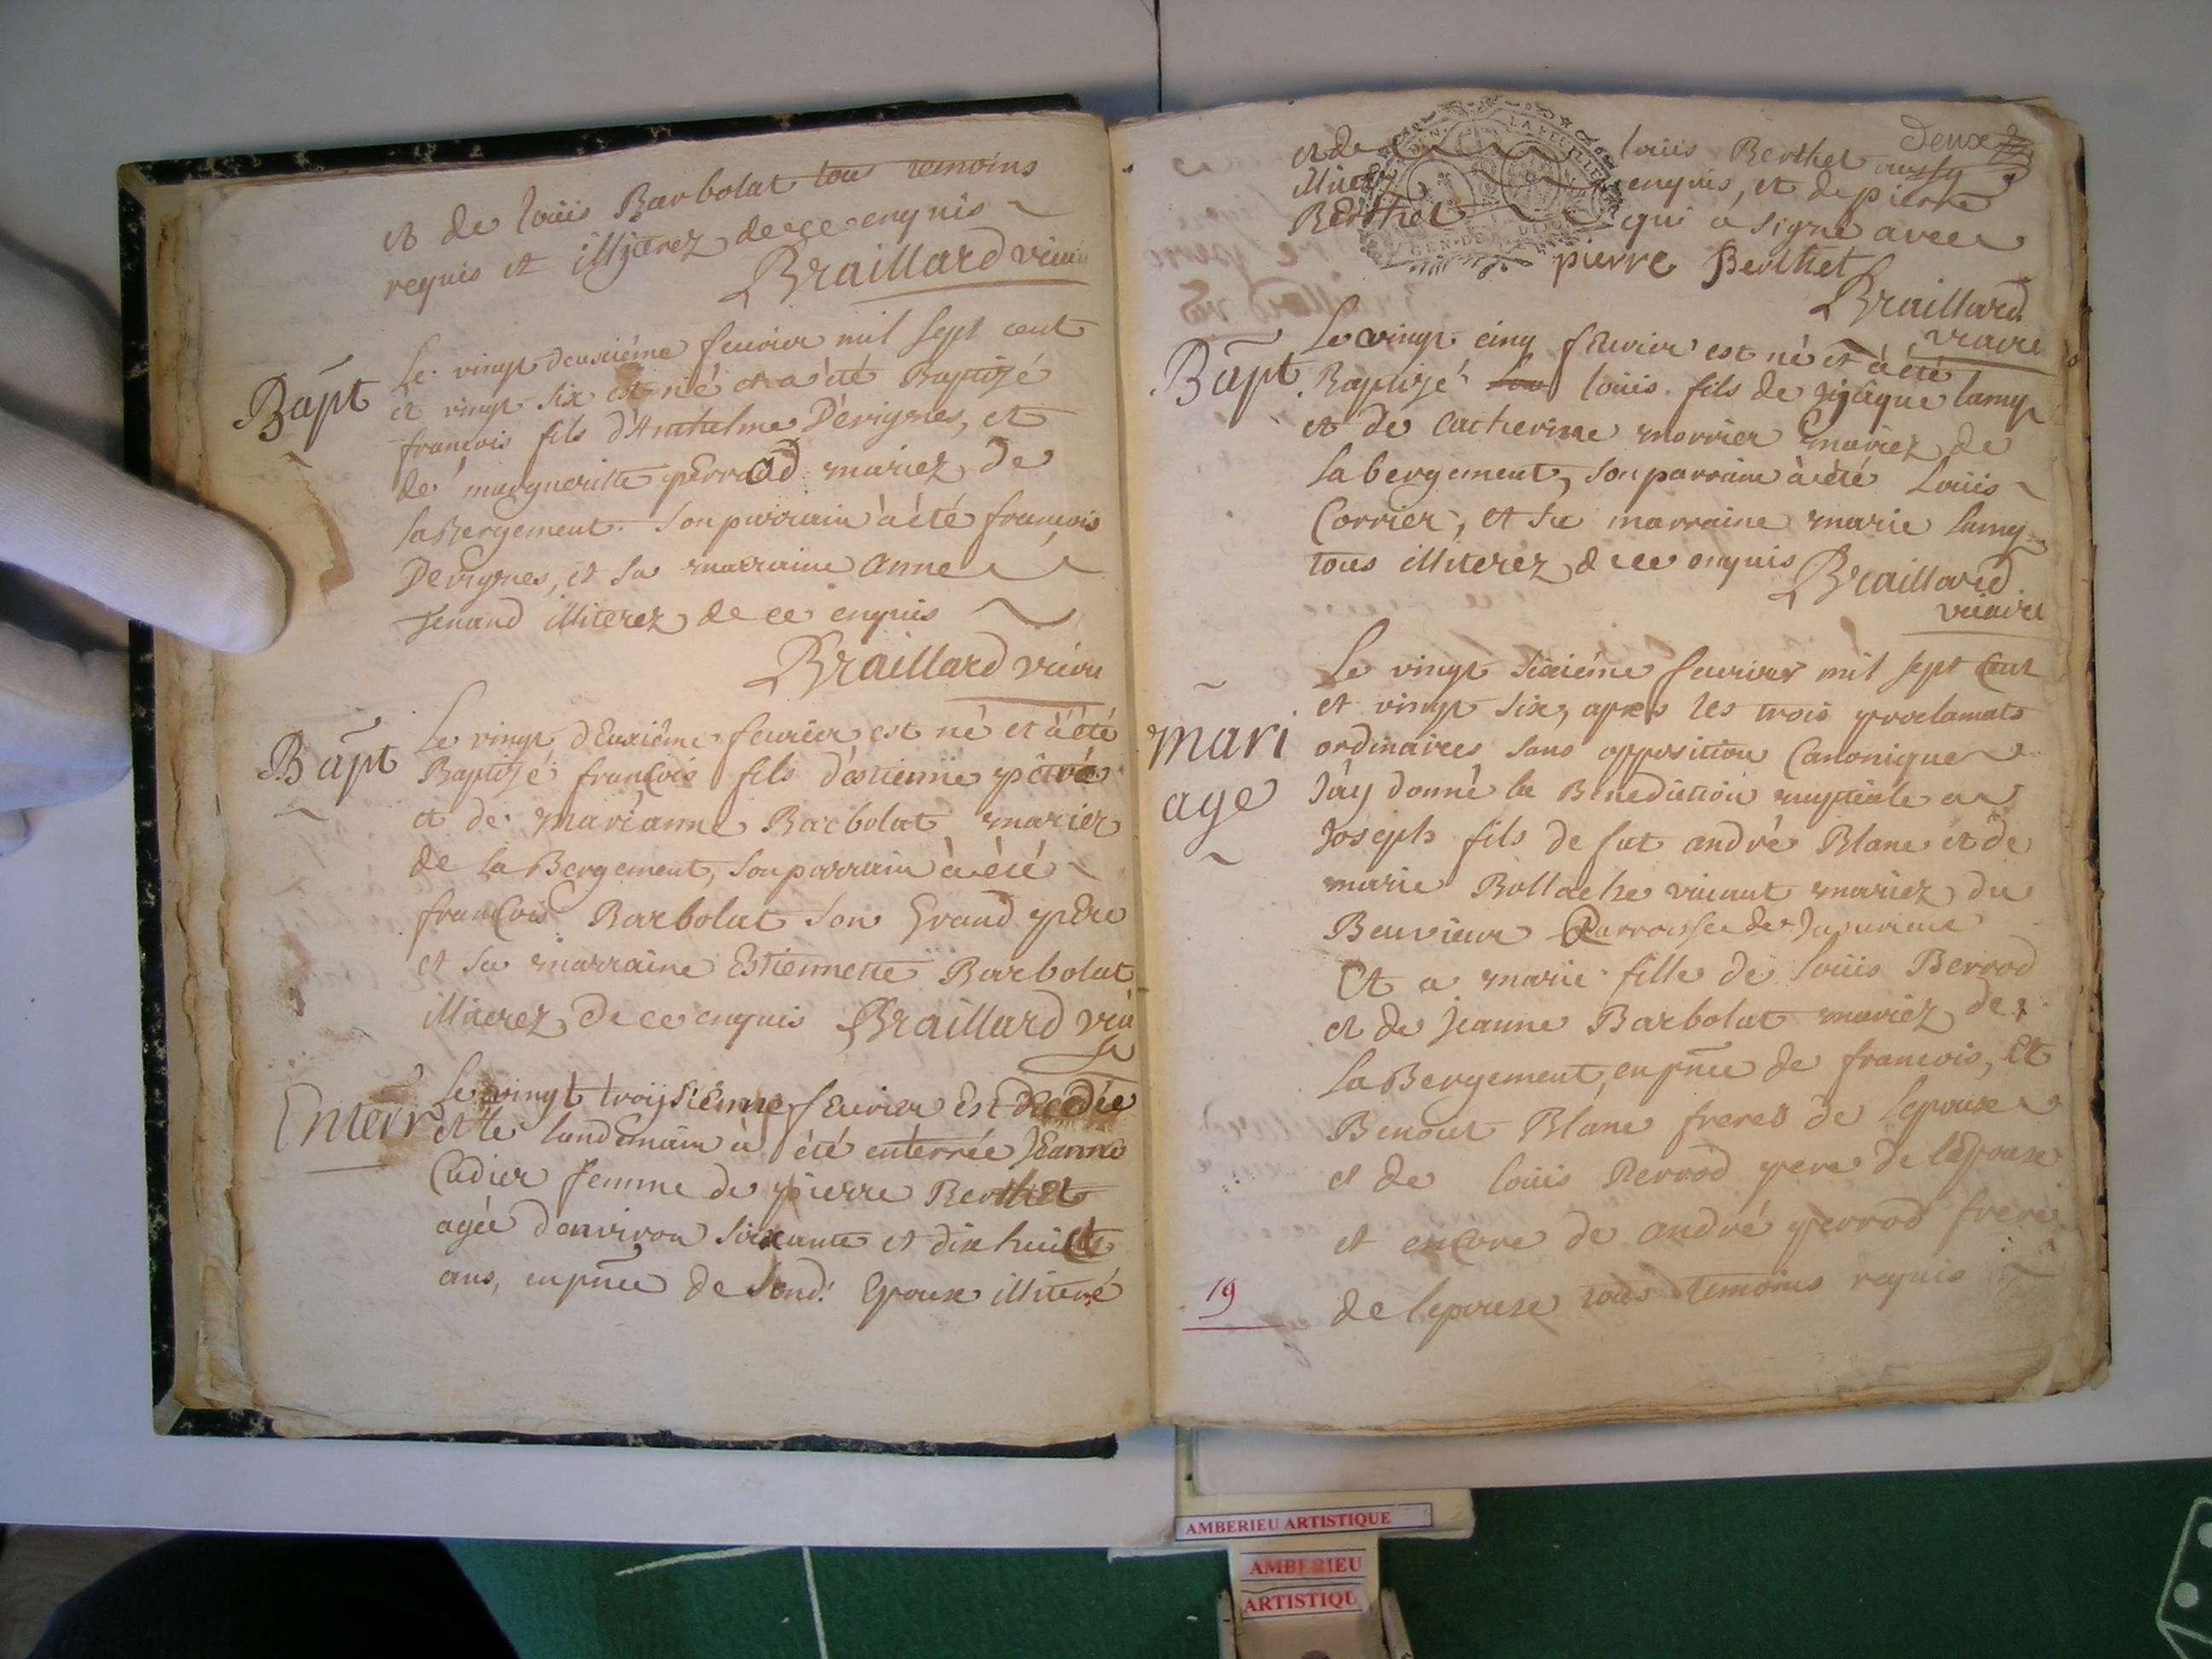 et de loüis Barbolat tou temoins
requis et illiterez de ce enquis
Braillard vicaire
Bapt
Le vingt deusiéme feuvier mil sept cent
et vingt six est né et a été Baptizé
francois fils d'Anthelme Dévignes, et
de marguerite perrod mariez de
la Bergement. Son parrain à été francois
Devignes, et sa marraine Anne
Jenand illiterez de ce enquis
Braillard vicaire
Bapt
Le vingt dEuxiéme feuvier est né et à été
Baptizé franCois fils d'éstienne
et de marianne Barbolat mariez
de la Bergement, son parrain à été
franCois Barbolat son Grand pere
et sa marraine Estiennette Barbolat
illiterez de ce enquis Braillard vic
Enterr
Le vingt troisiéme fEuvier Est decedée
et le landemain à été enterrée JEanne
Cudier femme de pierre Berthet
agée d'environ soixante et dix huict
ans, en pnce de sond. Epoux illiteré
Deux
et de loüis Berthet aussy
illiterez enquis, et de pierre
Berthet qui a signé avec
pierre Berthet
Braillard
vicaire
Bapt
Le vingt cinq fEuvier est né et à été
Baptizé loüis fils de jâque lamy
et de Catherine morrier mariez de
la bergement, son parrain à été Loüis
Corrier, et sa marraine marie lamy
tous illiterez de ce enquis Braillard
vicaire
mari
age
Le vingt sixiéme feuvier mil sept Cent
et vingt six, apres les trois proclamats
ordinaires sans opposition Canonique
J'ay donné la Benediction nuptiale a
Joseph fils de fut andré Blanc et de
marie vivant mariez du
Parroisse de Jujurieux
Et a marie fille de loüis Perrod
et de Jeanne Barbolat mariez de
la Bergement, en pnce de francois, Et
Benoit Blanc freres de l'epoux
et de loüis Perrod pere de l'Epouse
et enCore de andré perrod frere
19
de l'epouse tous temoins requis
AMBERIEU ARTISTIQUE
AMBERIEU
ARTISTIQU